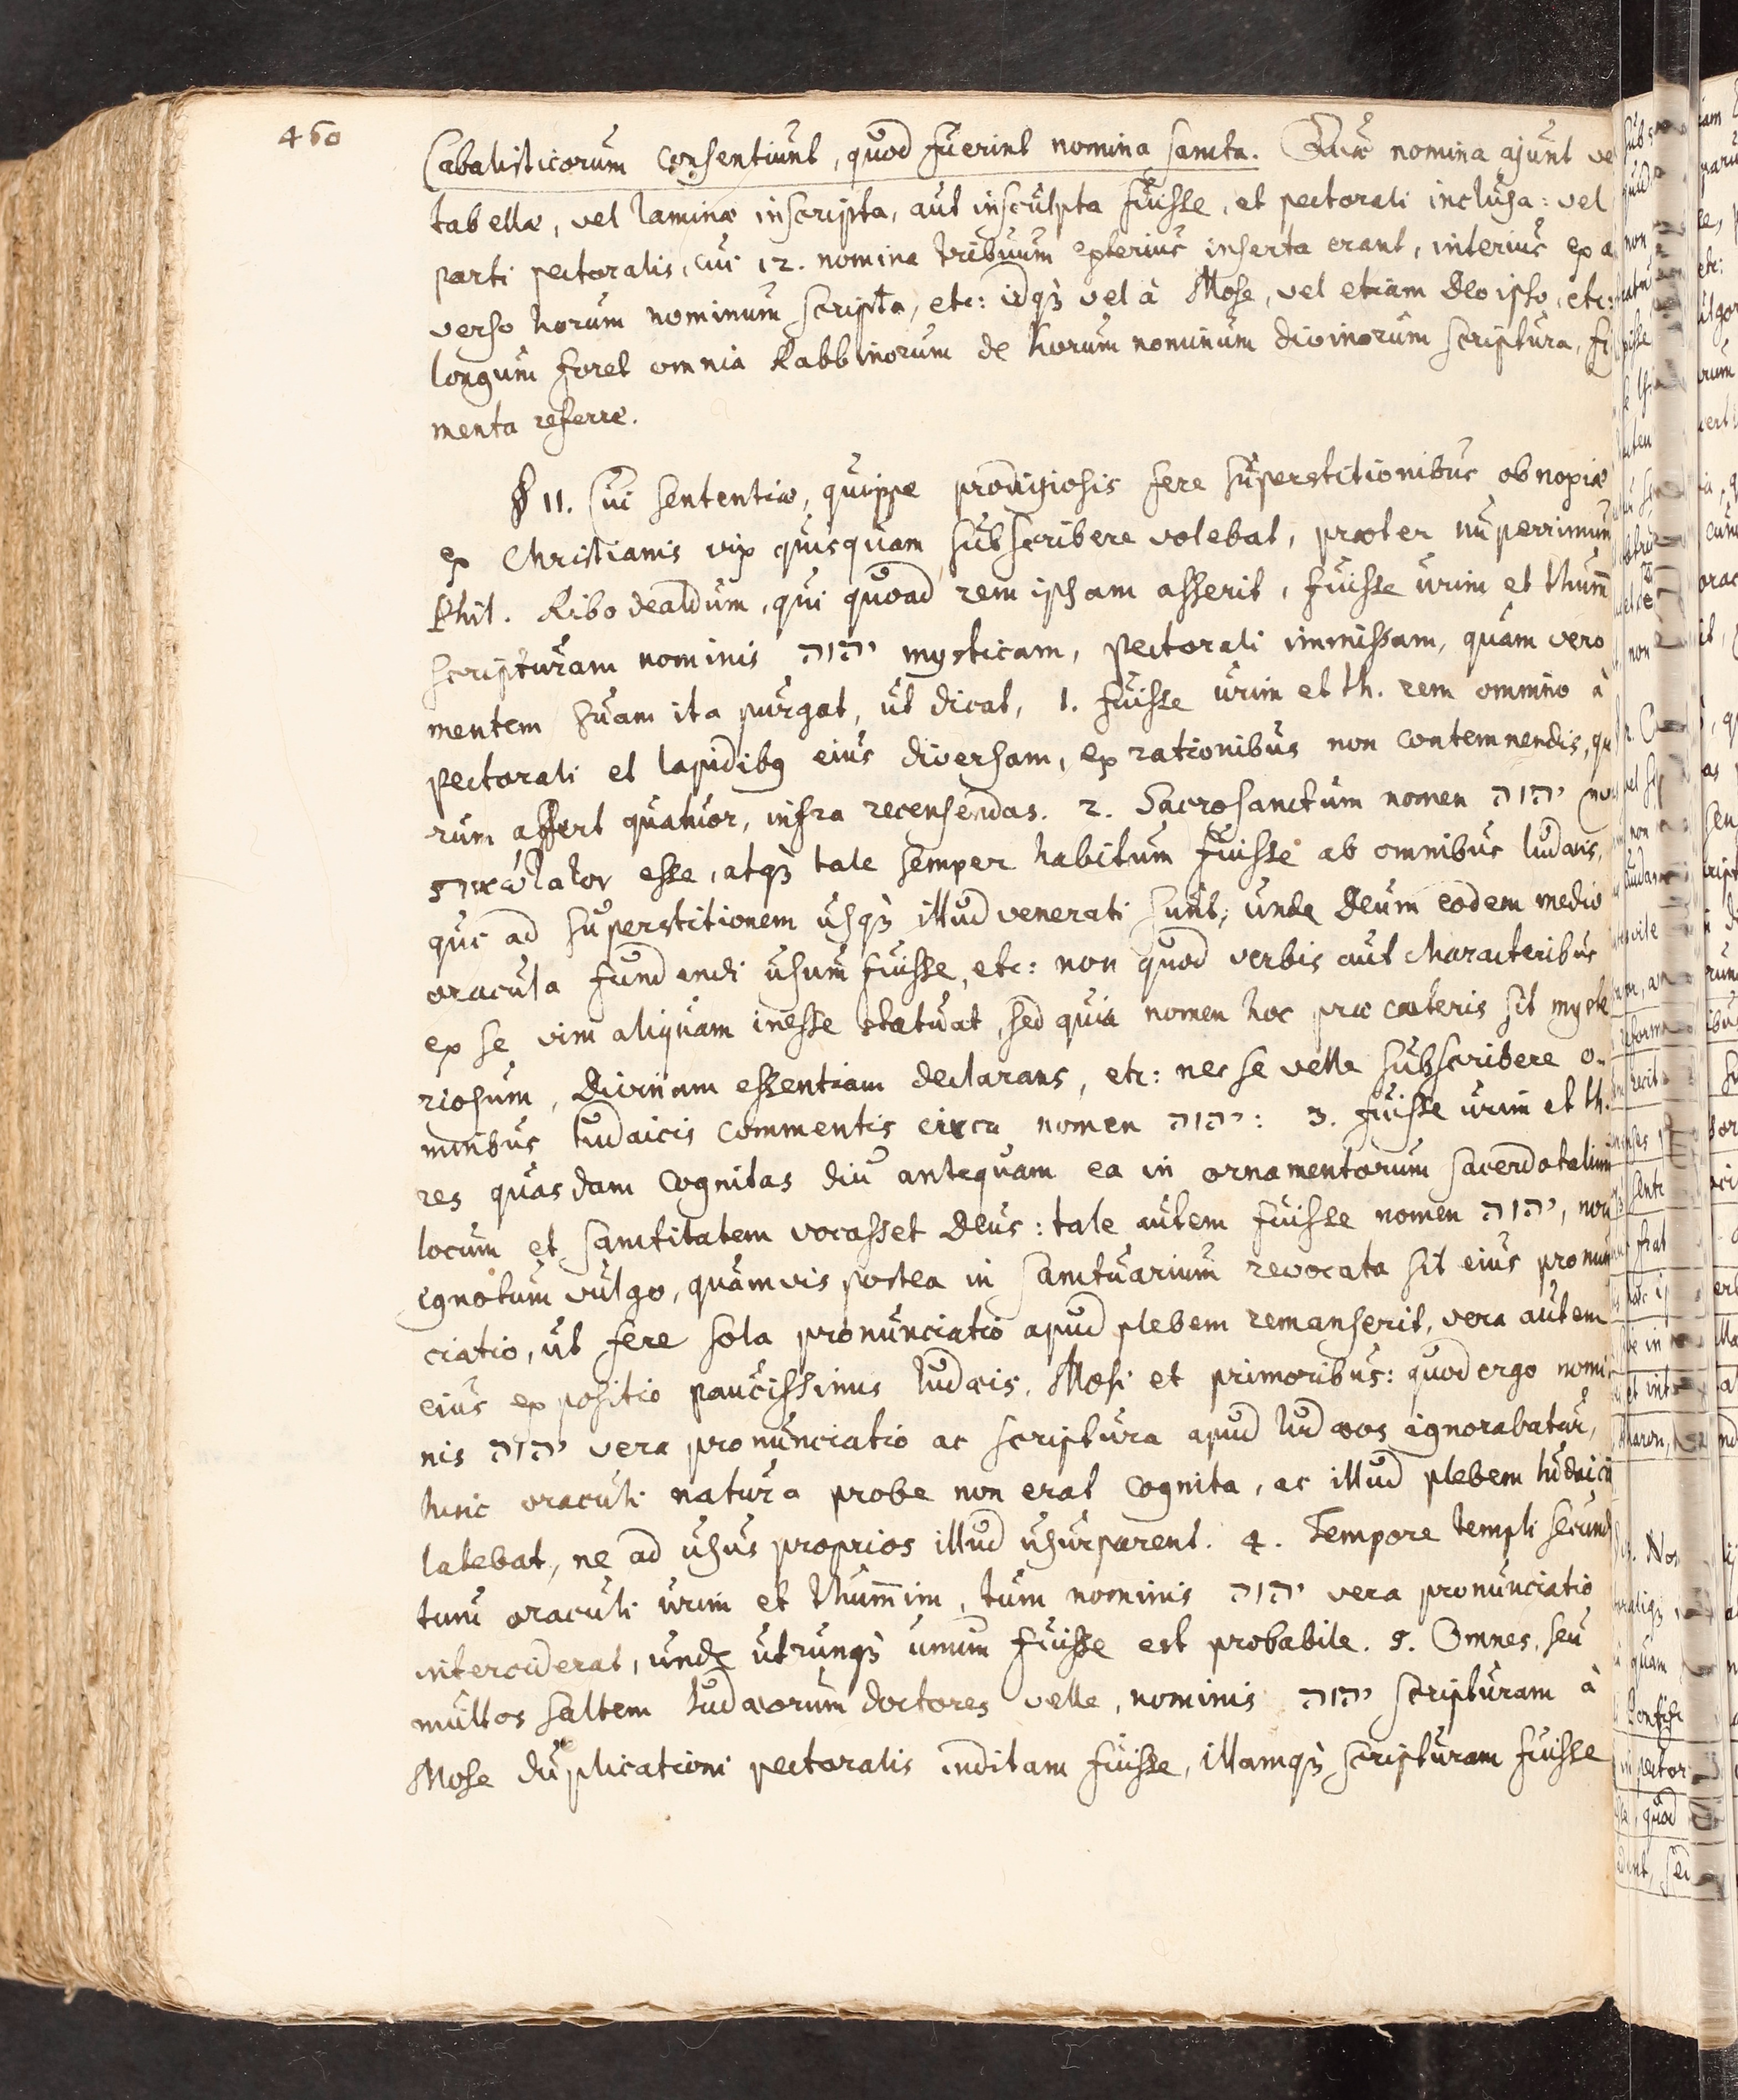 460
Cabalisticorum consentiunt, quod fuerint nomina sancta. Quæ nomina ajunt ve
tabellæ, vel laminæ inscripta, aut insculpta fuisse, et pectorali inclusa: vel
parti pectoralis, cui 12. nomina tribuum exterius inserta erant, interius ex a
verso horum nominum scripta, etc: idqꝫ vel à Mose, vel etiam Deo ipso, etc:
longum foret omnia Rabbinorum de horum nominum divinorum scriptura, fi
menta referre.
§ 11. Cui sententiæ, quippe prodigiosis fere superstitionibus obnoxiæ
ex Christianis vix quisquam subscribere volebat, præter nuperrimum
Phil. Ribodealdum, qui quoad rem ipsam asserit, fuisse urim et thum̄
scripturam nominis יהוה mysticam, pectorali immissam, quam vero
mentem suam ita purgat, ut dicat, 1. fuisse urim et th. rem omnino à
pectorali et lapidibꝫ eius diversam, ex rationibus non contemnendis, qu
rum affert quatuor, infra recensendas. 2. Sacrosanctum nomen יהוה
esse, atqꝫ tale semper habitum fuisse ab omnibus Iudæis,
qus ad superstitionem usqꝫ illud venerati sunt, unde Deum eodem medio
oracula fundendi usum fuisse, etc: non quod verbis aut characteribus
ex se vim aliquam inesse statuat, sed quia nomen hoc præ cæteris sit myste
riosum, Divinam essentiam declarans, etc: nec se velle subscribere o-
mnibus Iudaicis commentis circa nomen יהוה: 3. fuisse urim et th.
res quasdam cognitas diu antequam ea in ornamentorum sacerdotalium
locum et sanctitatem vocasset Deus: tale autem fuisse nomen יהוה, non
ignotum vulgo, quamvis postea in sanctuarium revocata sit eius pronun
ciatio, ut fere sola pronunciatio apud plebem remanserit, vera autem
eius expositio paucissimis Iudæis, Mosi et primoribus: quod ergo nomi
nis יהוה vera pronunciatio ac scriptura apud Iudæos ignorabatur,
hinc oraculi natura probe non erat cognita, ac illud plebem Iudaica
latebat, ne ad usus proprios illud usurparent. 4. Tempore templi secund
tum oraculi urim et thum̄im, tum nominis יהוה vera pronunciatio
interciderat, unde utrunqꝫ unum fuisse est probabile. 5. Omnes, seu
multos saltem Iudæorum doctores velle, nominis יהוה scripturam à
Mose duplicationi pectoralis inditam fuisse, illamqꝫ scripturam fuisse